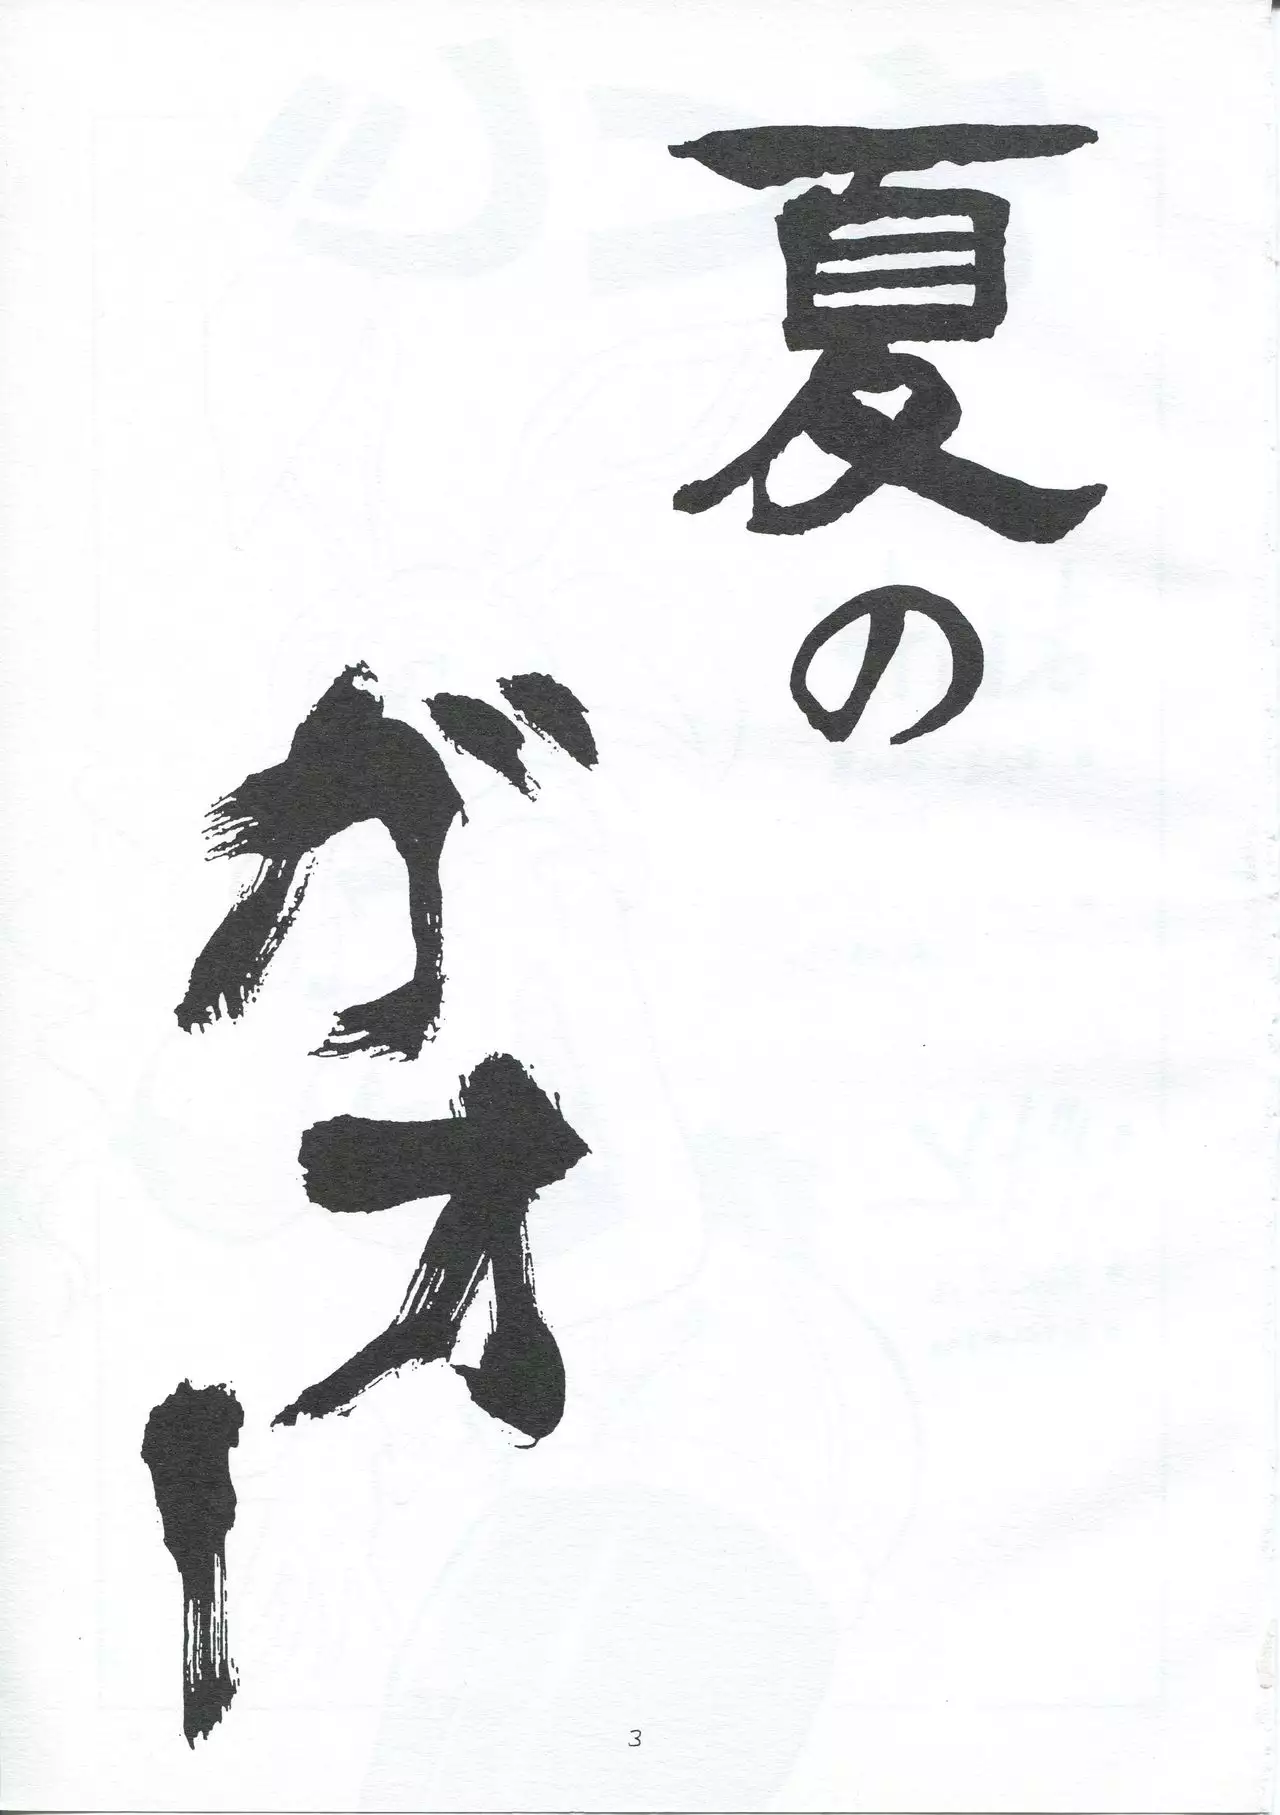 夏の
がオー
3